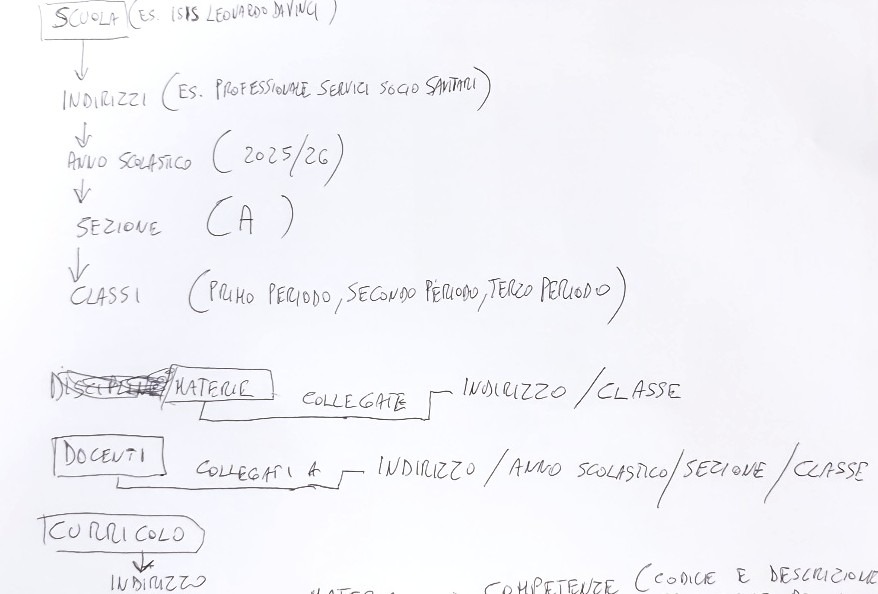 SCUOLA (ES. ISIS LEONARDO DA VINCI)
INDIRIZZI (ES. PROFESSIONALE SERVICI SOCIO SANITARI)
ANNO SCOLASTICO (2025/26)
SEZIONE (A)
CLASSI (PRIMO PERIODO, SECONDO PERIODO, TERZO PERIODO)
/MATERIE COLLEGATE INDIRIZZO / CLASSE
DOCENTI COLLEGATI A INDIRIZZO / ANNO SCOLASTICO / SEZIONE / CLASSE
CURRICOLO
INDIRIZZO
COMPETENZE (CODICE E DESCRIZIONE